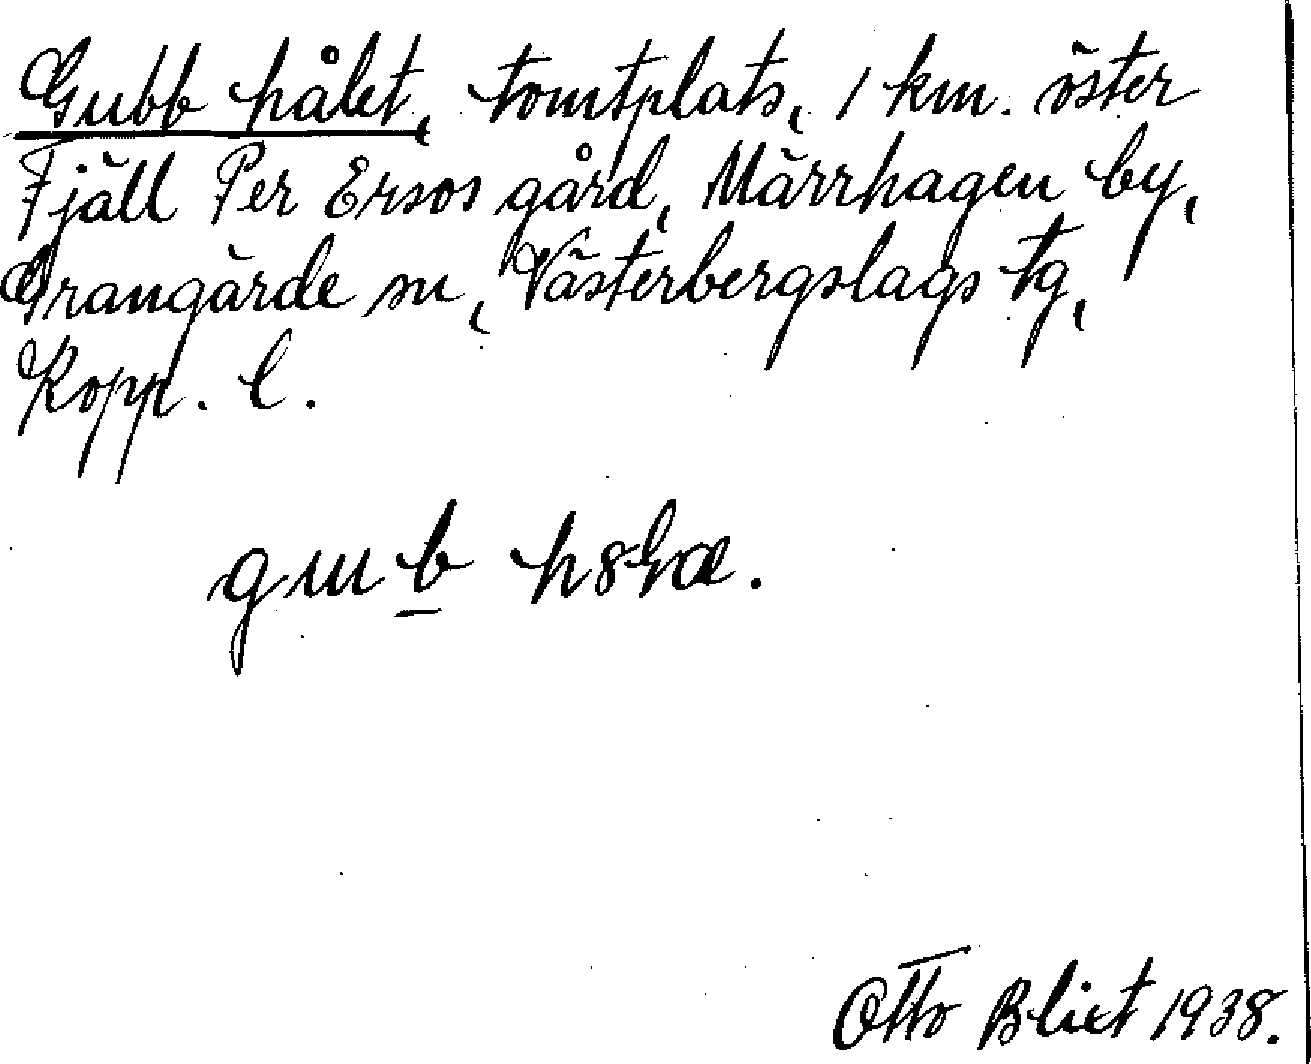 Gubb hålet, tomtplats, 1 km. öster
Fjäll Per Ersos gård, Märrhagen by,
Grangärde sn, Västerbergslags tg,
Kopp. l.
Otto Blixt 1938.